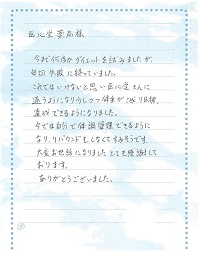 医心堂薬局様
今まで何度かダイエットを試みましたが、
毎回失敗に終っていました。
これではいけないと思い医心堂さんに
通うようになり少しづつ体重が減り目標
達成できるようになりました。
今では自分で体調管理できるように
なり、リバウンドもしなくてすみそうです。
大変お世話になりました とても感謝して
おります。
ありがとうございました。